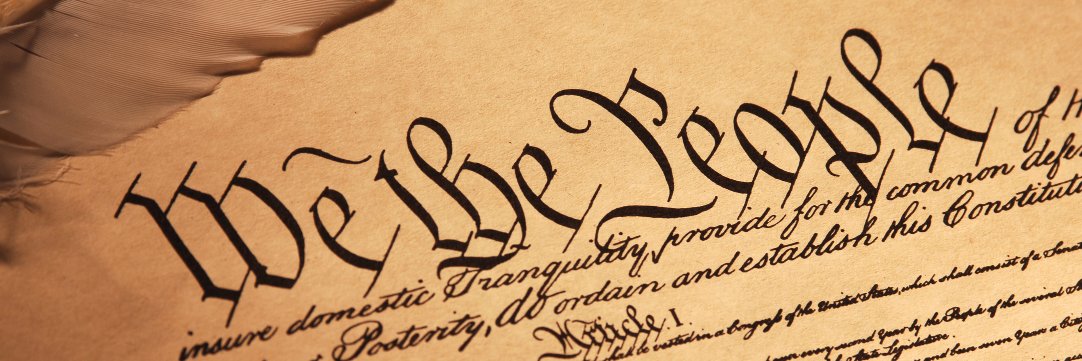 We the People of
insure domestic Tranquility, provide for the common
Posterity, do ordain and establish this
Article. I.
vested in a Congress of the United States, which shall consist of a
every second Year by the People of the several
State Legislature.
been seven Years a